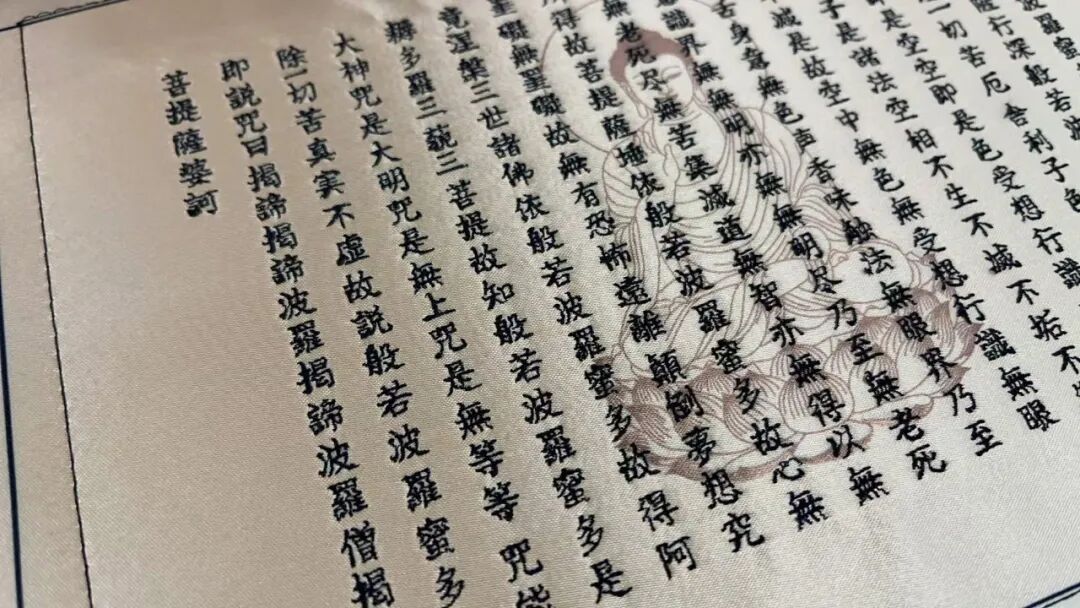 波羅蜜
薩行深般若波
一切苦厄舍利子色
即是空空即是色受想行識
子是諸法空相不生不滅不垢不
滅是故空中無色無受想行識無眼
舌身意無色声香味触法無眼界乃至
意識界無無明亦無無明尽乃至無老死
無老死尽無苦集滅道無智亦無得以無
所得故菩提薩埵依般若波羅蜜多故心無
罣礙無罣礙故無有恐怖遠離顛倒夢想究
竟涅槃三世諸佛依般若波羅蜜多故得阿
耨多羅三藐三菩提故知般若波羅蜜多是
大神咒是大明咒是無上咒是無等等咒能
除一切苦真実不虚故説般若波羅蜜多
即説咒曰揭諦揭諦波羅揭諦波羅僧揭
菩提薩婆訶